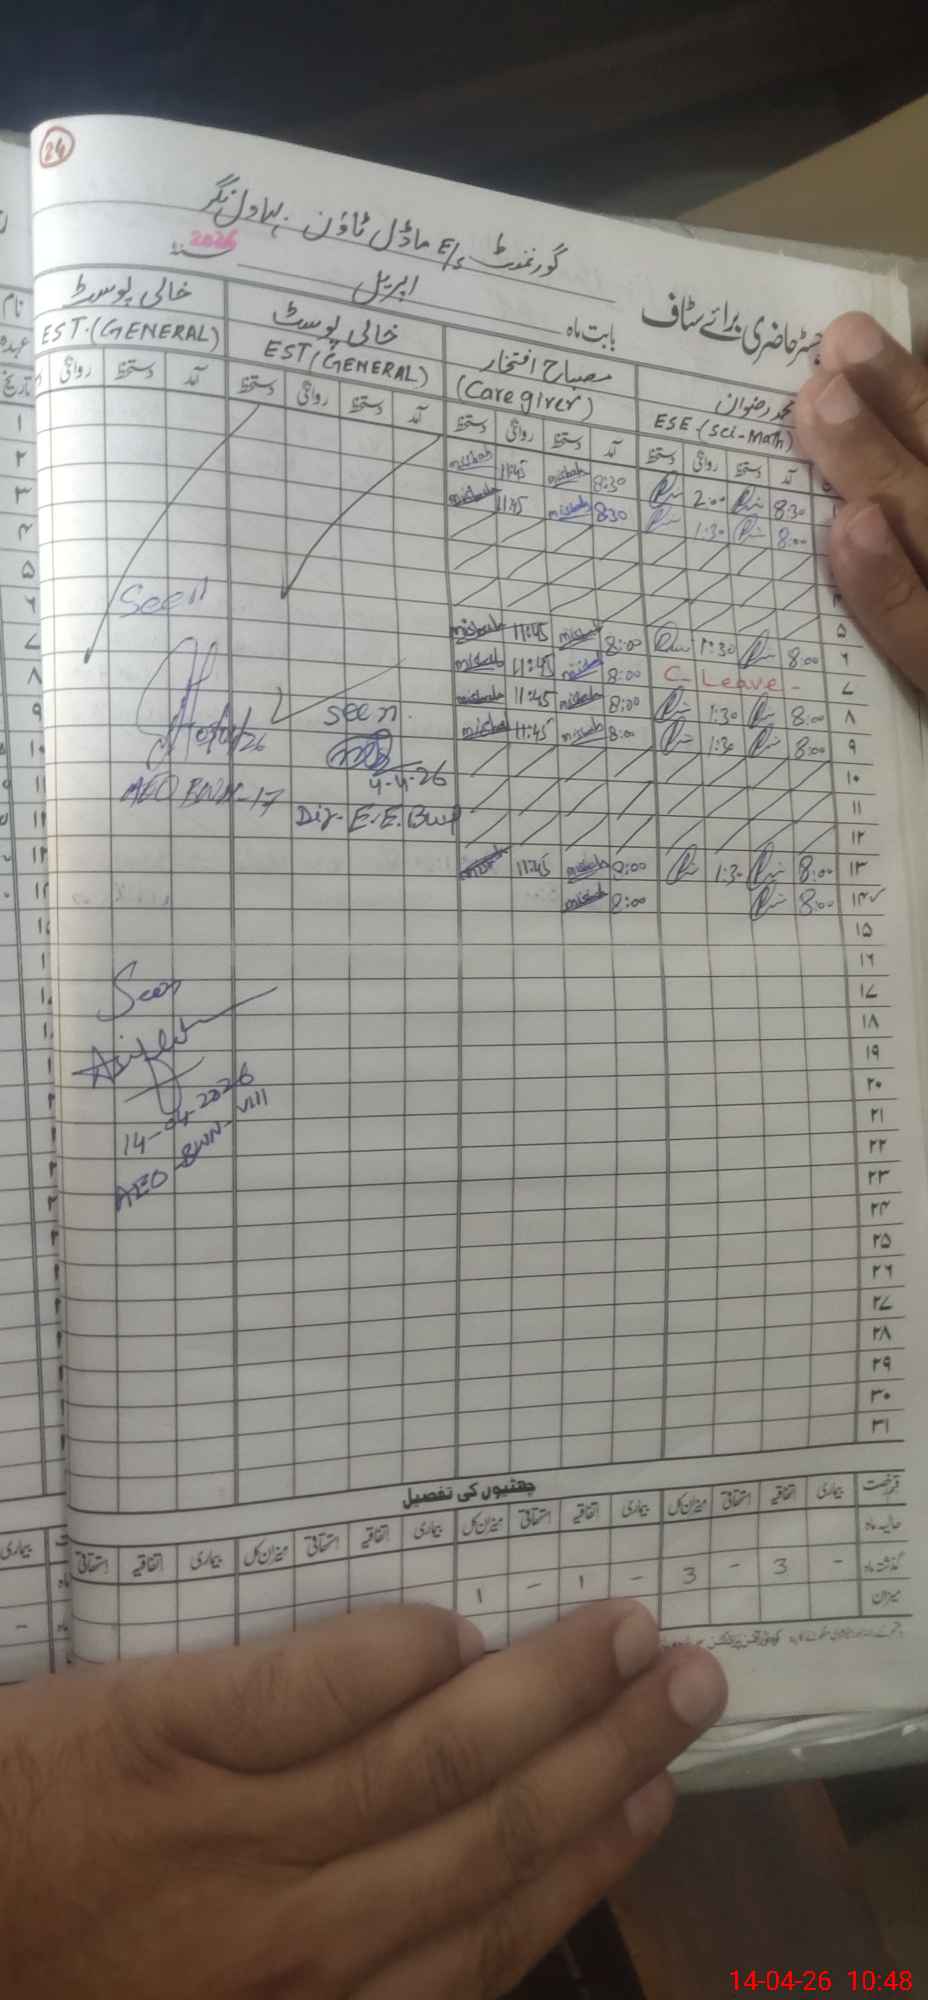 24
گورنمنٹ E/S ماڈل ٹاؤن بہاولنگر
رجسٹر حاضری برائے سٹاف
بابت ماہ اپریل سنہ 2026
محمد رضوان
ESE-(Sci-Math)
مصباح افتخار
(Caregiver)
خالی پوسٹ
EST.(GENERAL)
خالی پوسٹ
EST.(GENERAL)
آمد دستخط روانگی دستخط آمد دستخط روانگی دستخط آمد دستخط روانگی دستخط آمد دستخط روانگی
۱ 8:30 2:00 8:30 misbah 11:45 misbah
8:00 1:30 8:30 misbah 11:45 misbah
۵
۶ 8:00 1:30 8:00 misbah 11:45 misbah
۷ C-Leave- 8:00 misbah 11:45 misbah
۸ 8:00 1:30 8:00 misbah 11:45 misbah
۹ 8:00 1:30 8:00 misbah 11:45 misbah
۱۰
۱۱
۱۲
۱۳ 8:00 1:30 8:00 misbah 11:45
۱۴ 8:00 8:00 misbah
۱۵
۱۶
۱۷
۱۸
۱۹
۲۰
۲۱
۲۲
۲۳
۲۴
۲۵
۲۶
۲۷
۲۸
۲۹
۳۰
۳۱
Seen
AEO BWN-17
seen.
4-4-26
E.E.
Seen
14-04-2026
AEO BWN-VIII
چھٹیوں کی تفصیل
قسم رخصت بیماری اتفاقیہ استحقاقی میزان کل بیماری اتفاقیہ استحقاقی میزان کل بیماری اتفاقیہ استحقاقی میزان کل بیماری اتفاقیہ استحقاقی
حالیہ ماہ
گذشتہ ماہ - 3 - 3 - 1 - 1
میزان
نام
عہدہ
تاریخ
۱
۲
۳
۴
۵
۶
۷
۸
۹
۱۰
۱۱
بیماری
14-04-26 10:48